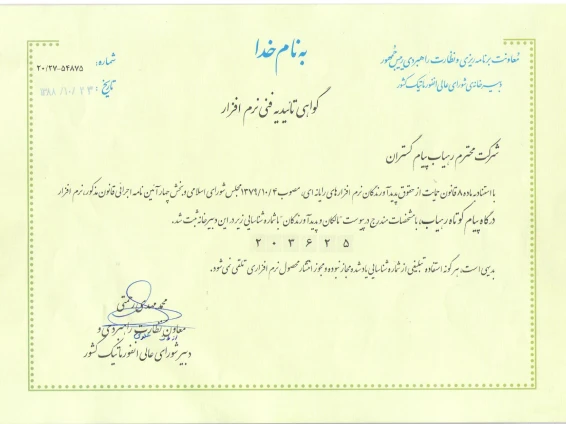 به نام خدا
معاونت برنامه ریزی و نظارت راهبردی رییس جمهور
دبیرخانه‌ی شورای عالی انفورماتیک کشور
شماره: ۵۴۸۷۵-۲۰/۲۷
تاریخ: ۱۳۸۸/۱۰/۲۳
گواهی تائیدیه فنی نرم افزار
شرکت محترم رهیاب پیام گستران
با استناد ماده ۸ قانون حمایت از حقوق پدیدآورندگان نرم افزارهای رایانه ای، مصوب ۱۳۷۹/۱۰/۴ مجلس شورای اسلامی و بخش چهار آئین نامه اجرائی قانون مذکور، نرم افزار
درگاه پیام کوتاه رهیاب، با مشخصات مندرج در پیوست "مالکان و پدیدآورندگان" با شماره شناسایی زیر در این دبیرخانه ثبت شد.
۲۰۳۶۲۵
بدیهی است، هر گونه استفاده تبلیغی از شماره شناسایی یاد شده مجاز نبوده و مجوز انتشار محصول نرم افزاری تلقی نمی شود.
محمد مهدی
معاون نظارت راهبردی و
دبیر شورای عالی انفورماتیک کشور